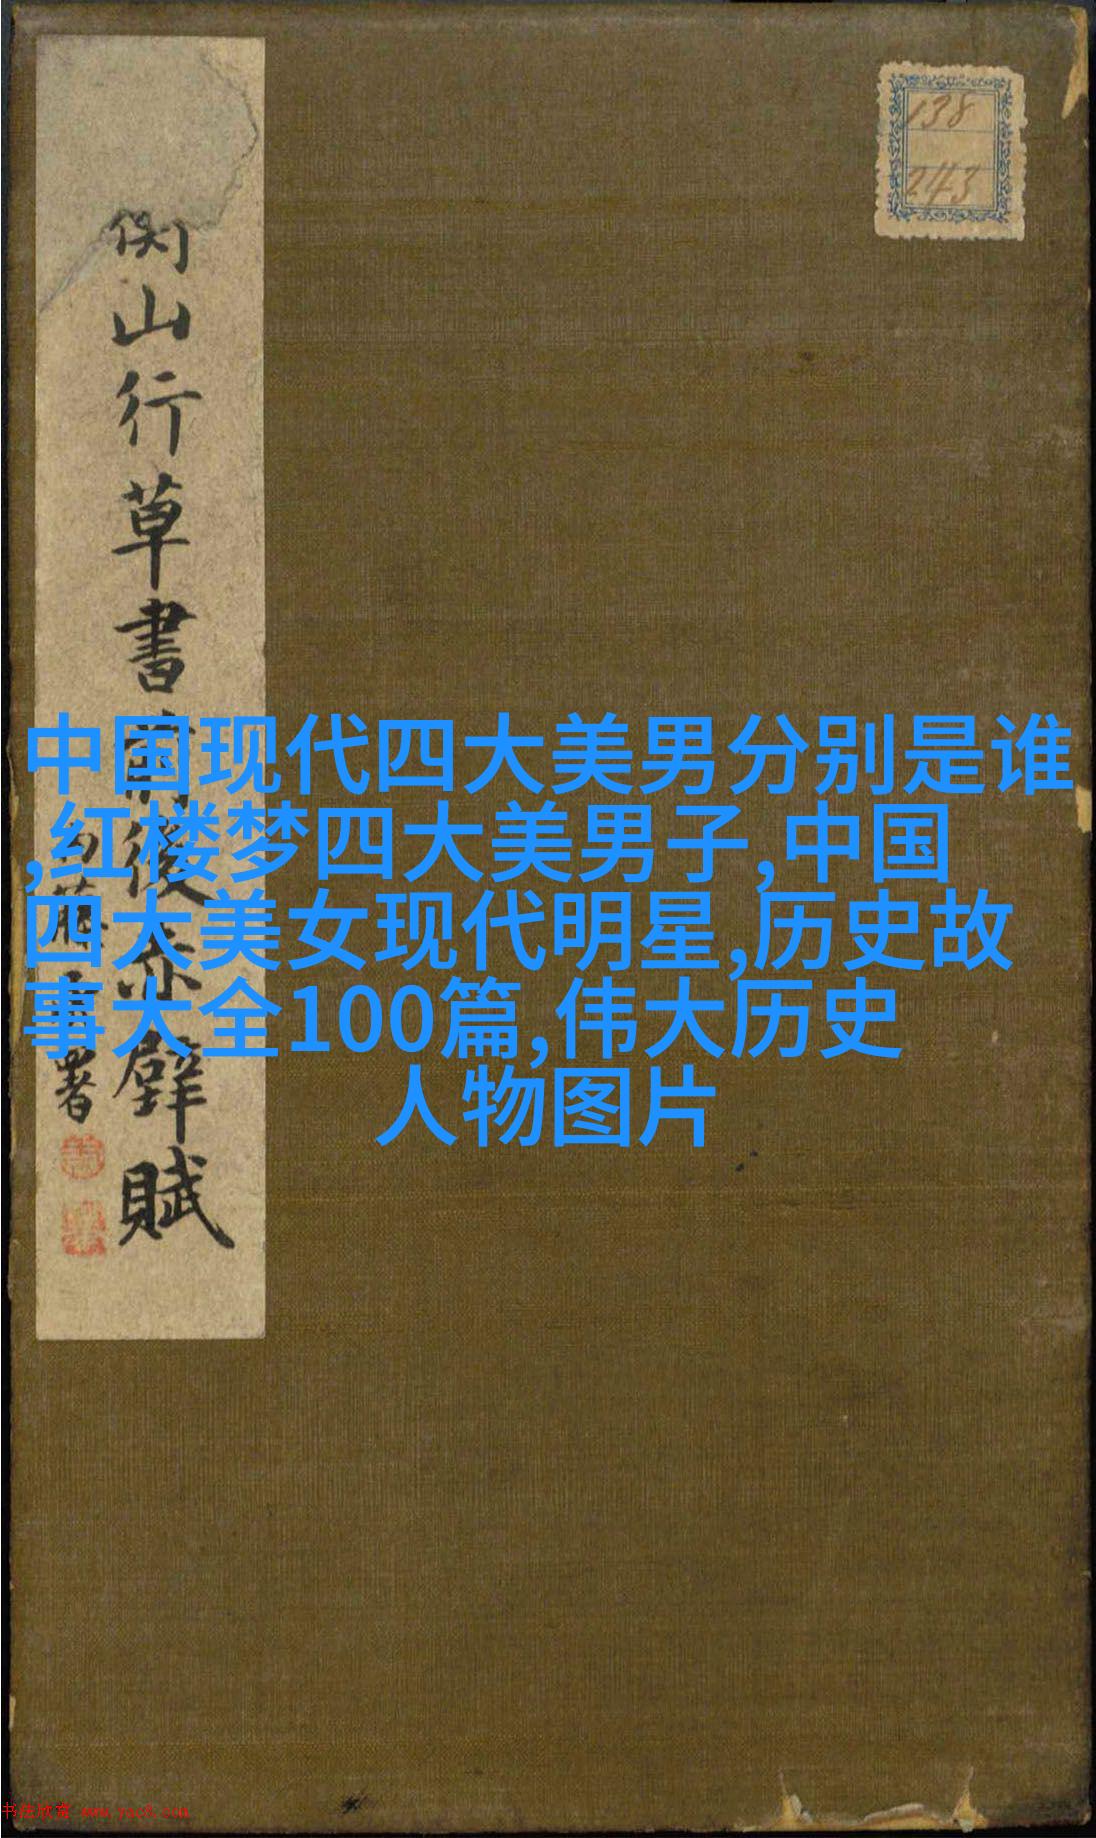 138
243
山行草書前後赤壁賦
署
中国现代四大美男分别是谁
,红楼梦四大美男子,中国
四大美女现代明星,历史故
事大全100篇,伟大历史
人物图片
书法欣赏 www.yac8.com